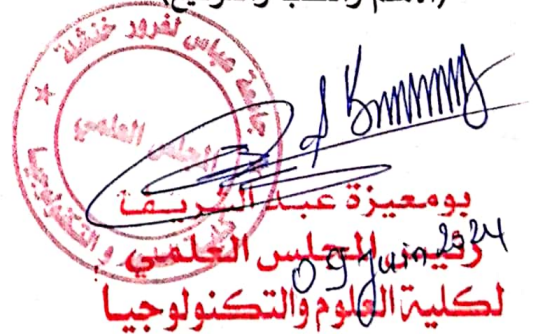 (الاسم واللقب والتوقيع)
جامعة عباس لغرور خنشلة
المجلس العلمي
بومعيزة عبد
رئيس المجلس العلمي
09 Juin 2024
لكلية العلوم والتكنولوجيا